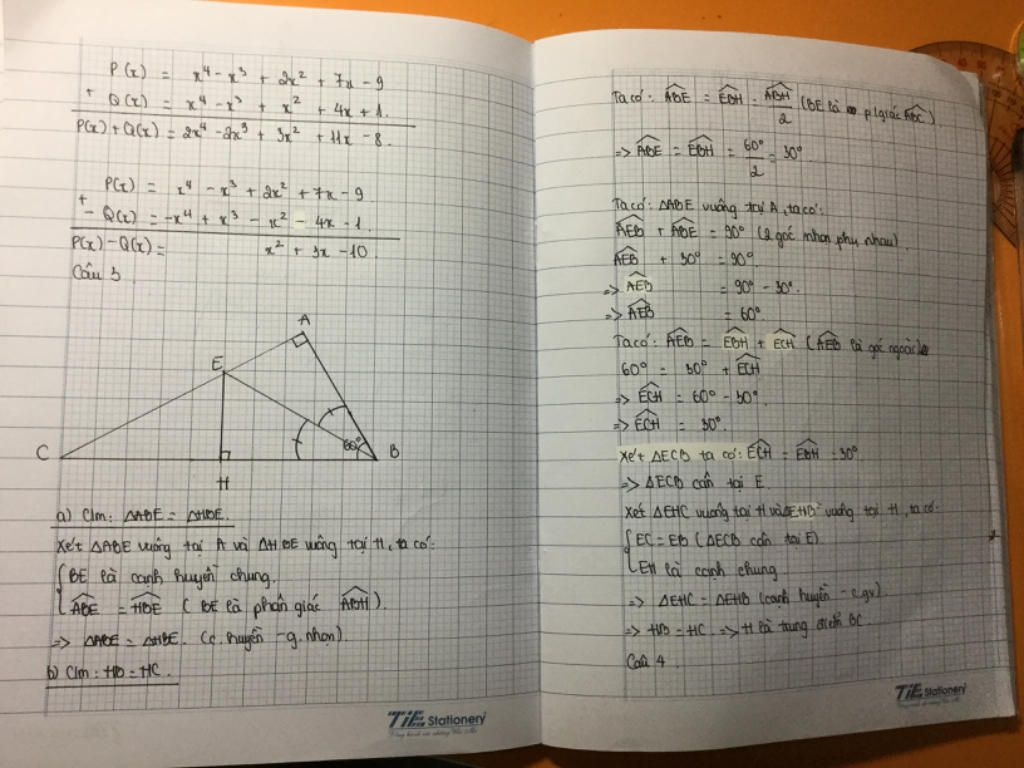 P(x) = x⁴ - x³ + 2x² + 7x - 9
+ Q(x) = x⁴ - x³ + x² + 4x + 1.
P(x) + Q(x) = 2x⁴ - 2x³ + 3x² + 11x - 8.
P(x) = x⁴ - x³ + 2x² + 7x - 9
+ - Q(x) = -x⁴ + x³ - x² - 4x - 1.
P(x) - Q(x) = x² + 3x - 10.
Câu 3
A
E
C
60°
B
H
a) Clm: ΔABE = ΔHBE.
Xét ΔABE vuông tại A và ΔHBE vuông tại H, ta có:
{ BE là cạnh huyền chung.
ABE = HBE (BE là phân giác ABH).
=> ΔABE = ΔHBE. (c.huyền - g.nhọn).
b) Clm: HB = HC.
TiE Stationery
Ta có: ABE = EBH = ABH/2 (BE là p/giác ABC)
=> ABE = EBH = 60°/2 = 30°.
Ta có: ΔABE vuông tại A, ta có:
AEB + ABE = 90° (2 góc nhọn phụ nhau).
AEB + 30° = 90°.
=> AEB = 90° - 30°.
=> AEB = 60°.
Ta có: AEB = EBH + ECH (AEB là góc ngoài)
60° = 30° + ECH
=> ECH = 60° - 30°.
=> ECH = 30°.
Xét ΔECB ta có: ECH = EBH = 30°
=> ΔECB cân tại E.
Xét ΔEHC vuông tại H và ΔEHB vuông tại H, ta có:
{ EC = EB (ΔECB cân tại E)
EH là cạnh chung
=> ΔEHC = ΔEHB (cạnh huyền - c.gv)
=> HB = HC. => H là trung điểm BC.
Câu 4.
TiE Stationery